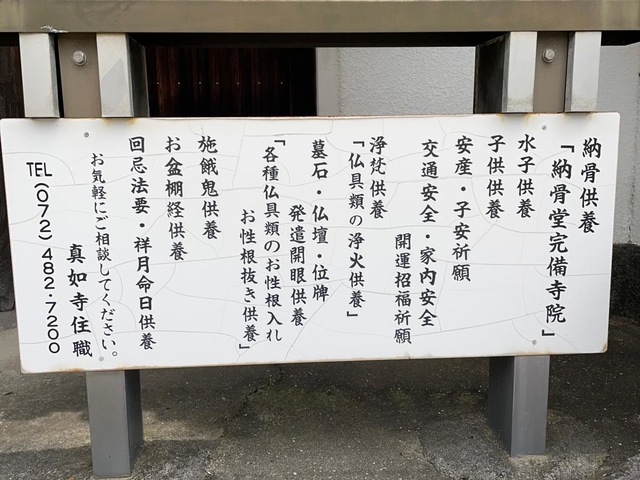 納骨供養
「納骨堂完備寺院」
水子供養
子供供養
安産・子安祈願
交通安全・家内安全
開運招福祈願
浄梵供養
「仏具類の浄火供養」
墓石・仏壇・位牌
発遣開眼供養
「各種仏具類のお性根入れ
お性根抜き供養」
施餓鬼供養
お盆棚経供養
回忌法要・祥月命日供養
お気軽にご相談してください。
真如寺住職
TEL(072)482・7200